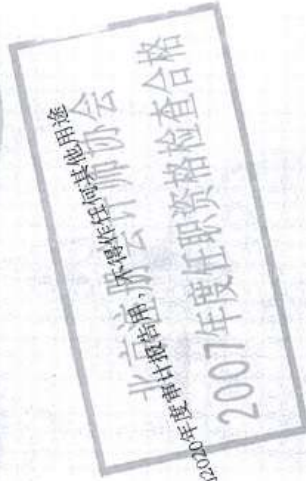 北京注册会计师协会
2007年度任职资格检查合格
2020年度审计报告用，不得作任何其他用途